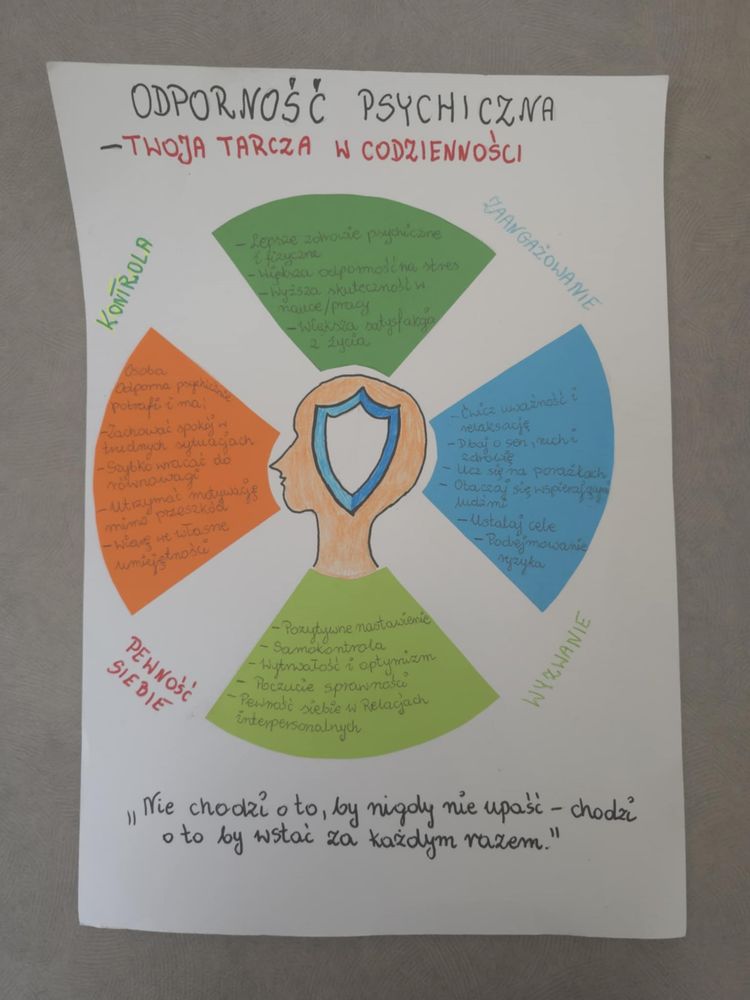 ODPORNOŚĆ PSYCHICZNA
—TWOJA TARCZA W CODZIENNOŚCI
KONTROLA
ZAANGAŻOWANIE
- Lepsze zdrowie psychiczne
i fizyczne
- Większa odporność na stres
- Wyższa skuteczność w
nauce/pracy
- Większa satysfakcja
z życia
Osoba
Odporna psychicznie
potrafi i ma:
- Zachować spokój w
trudnych sytuacjach
- Szybko wracać do
równowagi
- Utrzymać motywację
mimo przeszkód
- Wiarę we własne
umiejętności
- Ćwicz uważność i
relaksację
- Dbaj o sen, ruch i
zdrowie
- Ucz się na porażkach
- Otaczaj się wspierającymi
ludźmi
- Ustalaj cele
- Podejmowanie
ryzyka
- Pozytywne nastawienie
- Samokontrola
- Wytrwałość i optymizm
- Poczucie sprawności
- Pewność siebie w Relacjach
interpersonalnych
PEWNOŚĆ
SIEBIE
WYZWANIE
„Nie chodzi o to, by nigdy nie upaść – chodzi
o to by wstać za każdym razem."